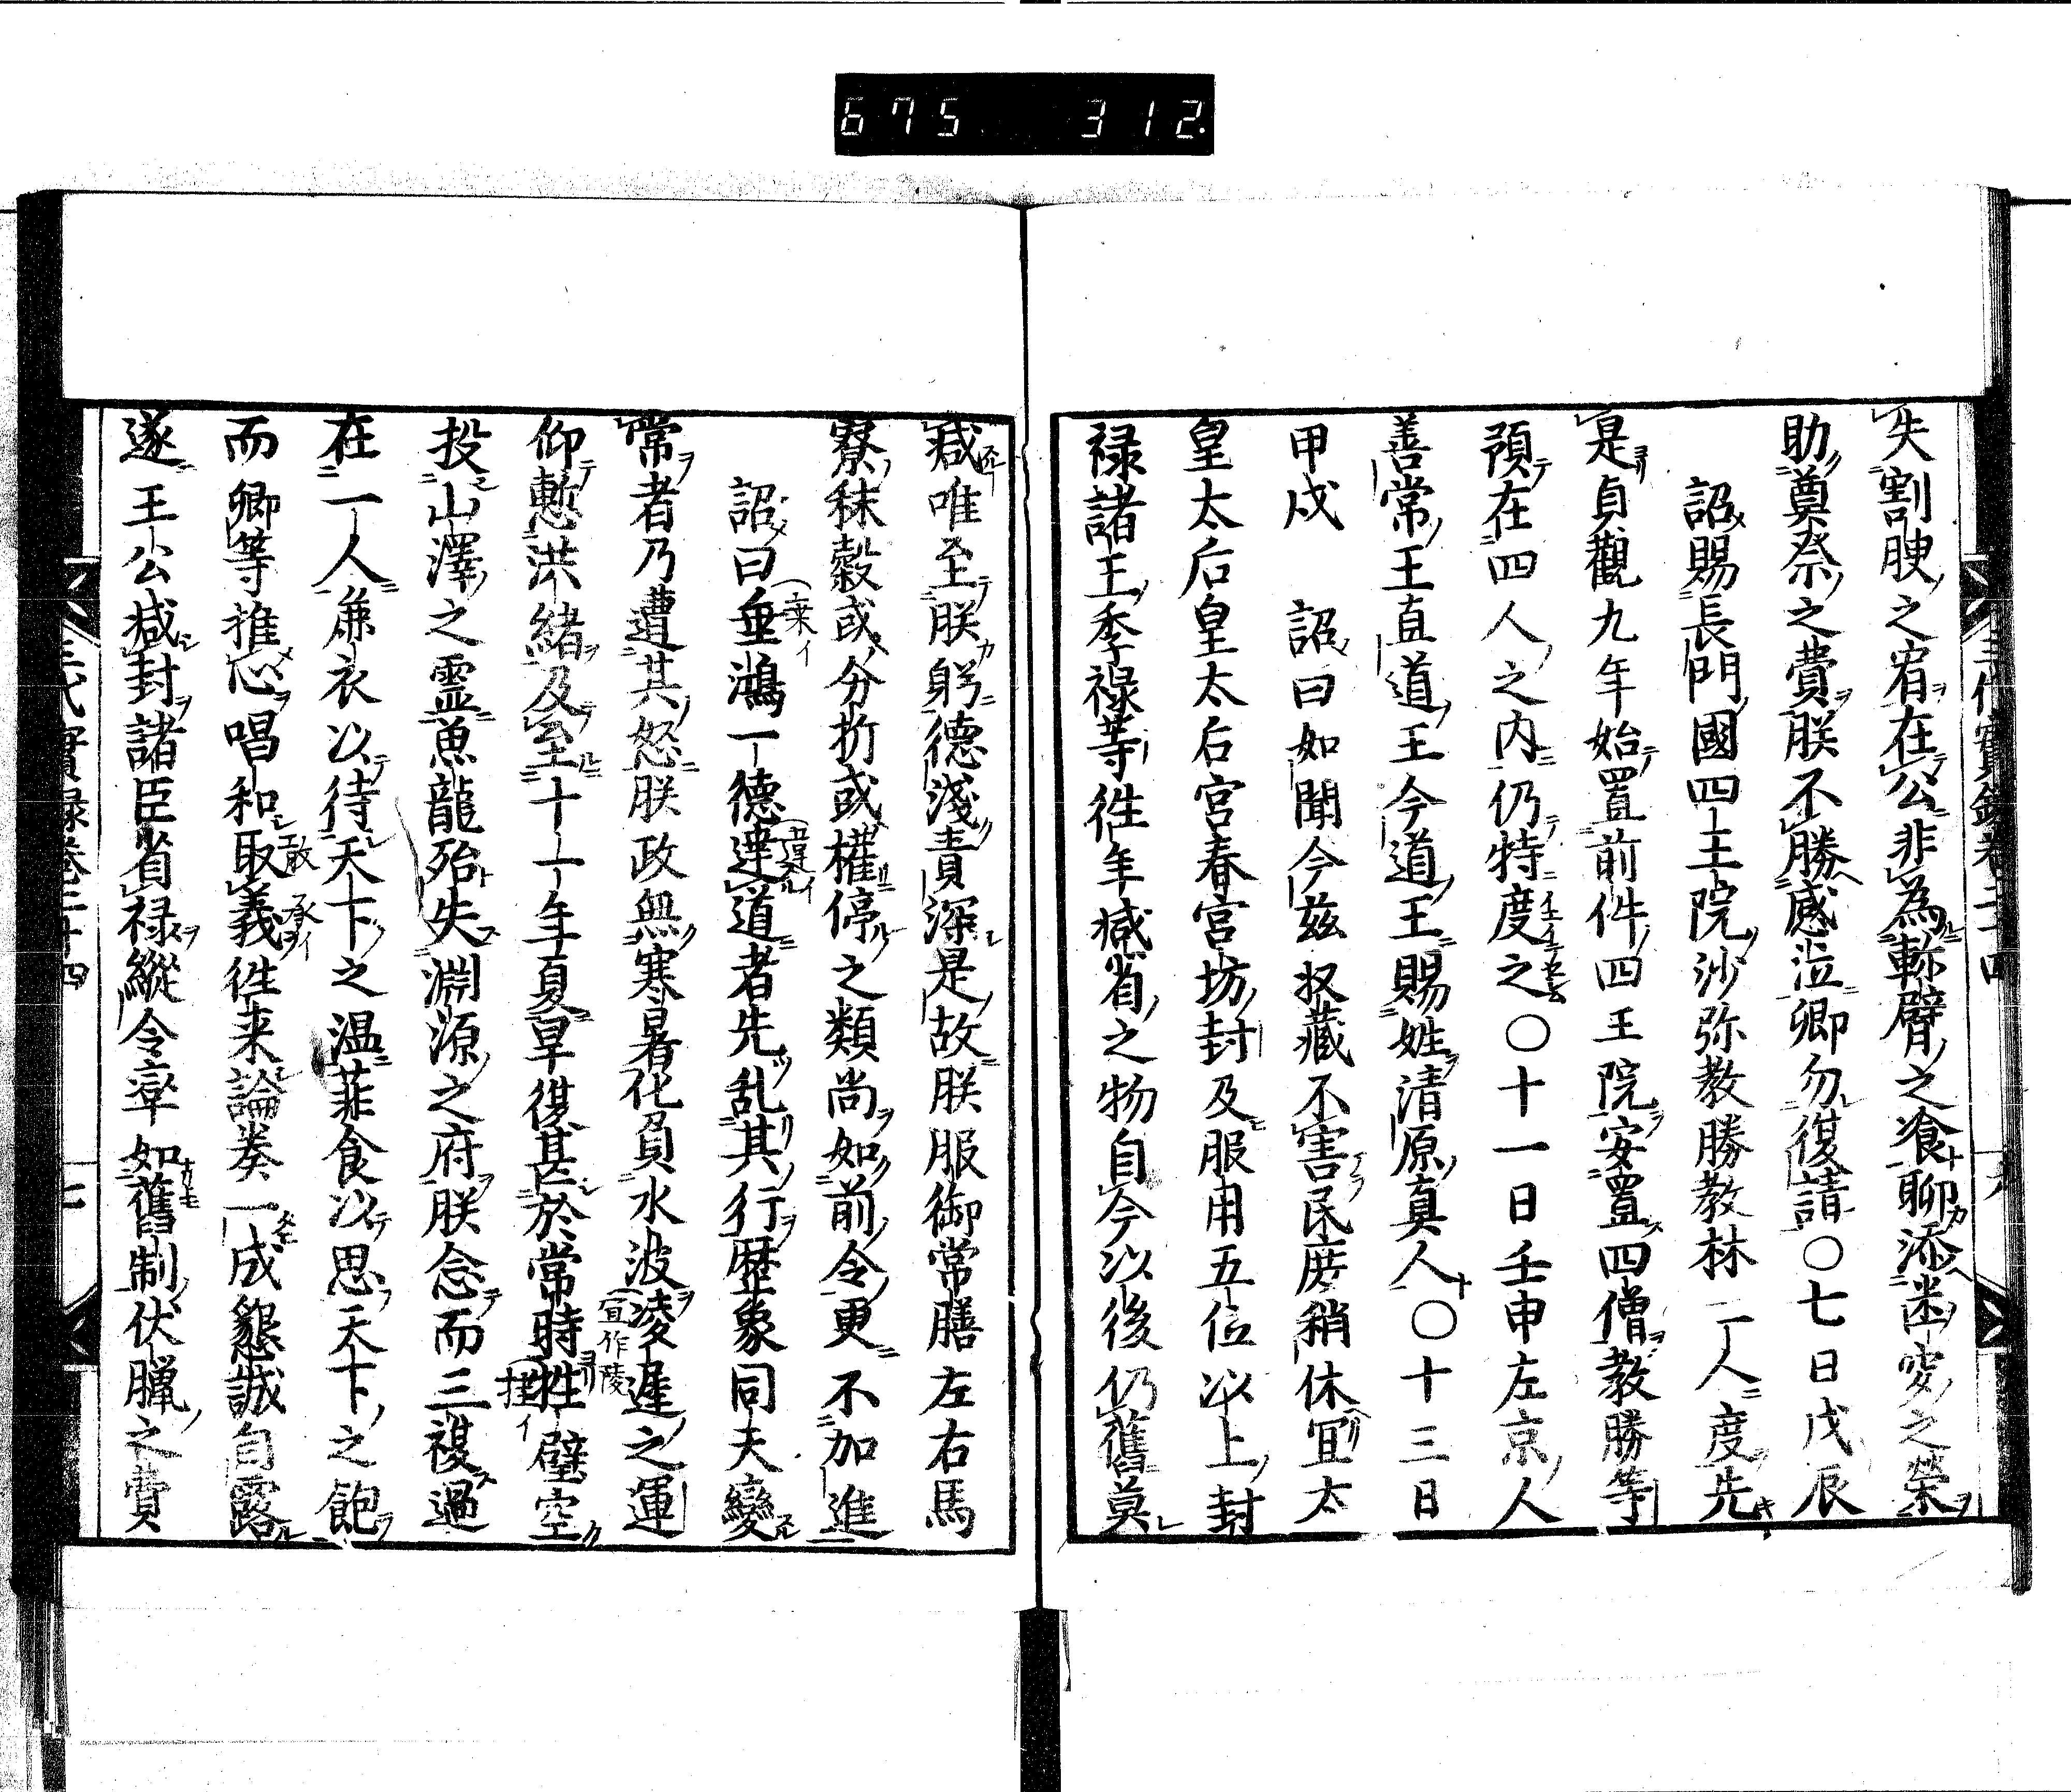 675 312
失割腴之宥在公非為斬臂之飡聊添窆之榮
助奠祭之費朕不勝感泣卿勿復請〇七日戊辰
詔賜長門國四王院沙弥教勝教林二人度先
是貞觀九年始置前件四王院安置四僧教勝等
預在四人之内仍特度之〇十一日壬申左京人
善常王直道王今道王賜姓清原真人〇十三日
甲戌 詔曰如聞今茲収藏不害民庶稍休冝太
皇太后皇太后宮春宮坊封及服用五位以上封
禄諸王季禄等徃年减省之物自今以後仍舊莫
减唯至朕躬德淺責深是故朕服御常膳左右馬
寮秣穀或分折或權停之類尚如前令更不加進
詔曰垂鴻一德達道者先乱其行歴象同天變
常者乃遭其怒朕政無寒暑化負水波凌遲之運
宜作陵
仰慙洪緒及至十一年夏旱復甚於常時牲璧空
投山澤之靈魚龍殆失淵源之府朕念而三複過
在一人廉衣以待天下之温菲食以思天下之飽
而卿等推心唱和取義徃来論奏一成懇誠自露
遂王公减封諸臣省禄縱令率如舊制伏臘之費